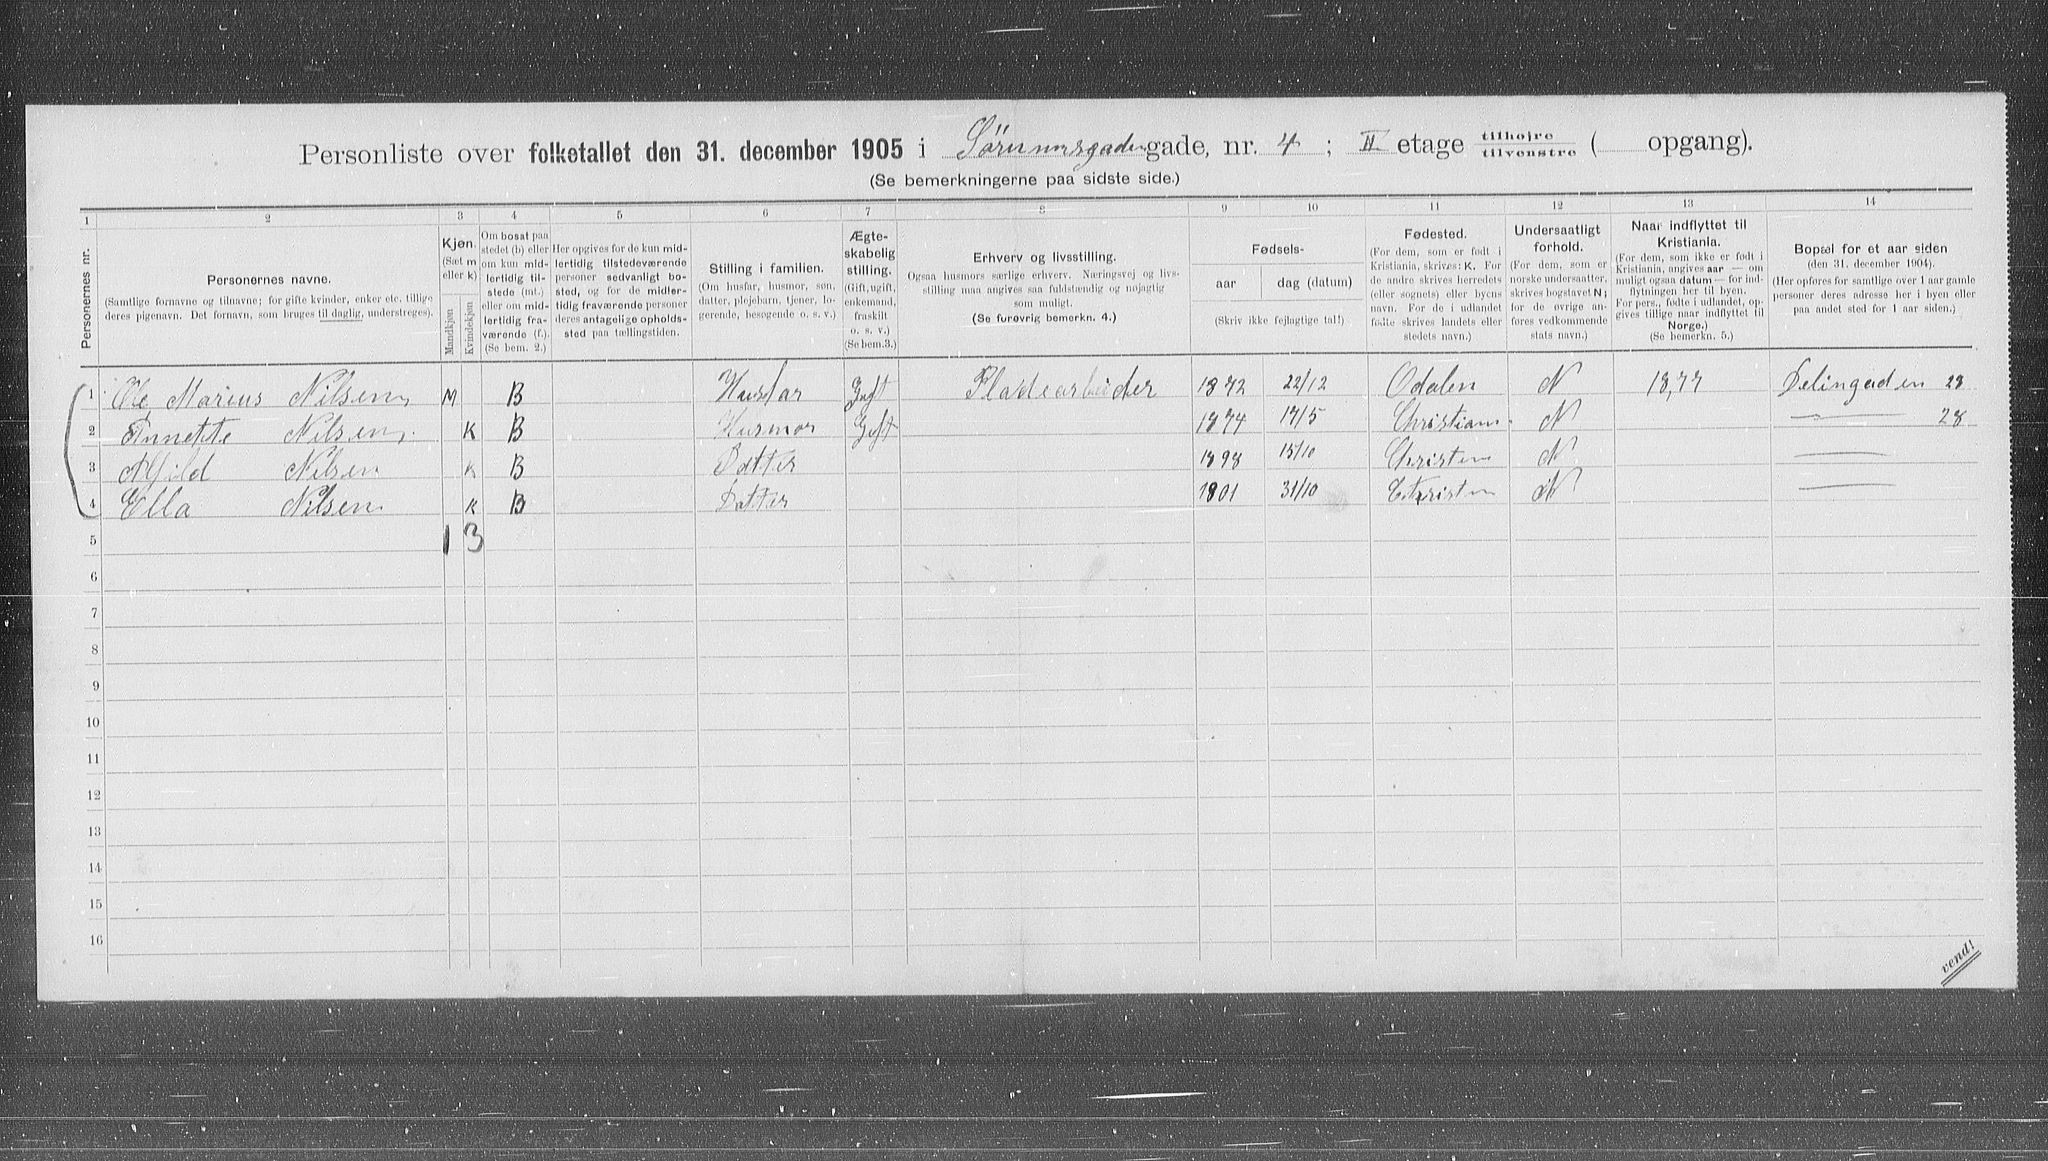 Personliste over folketallet den 31. december 1905 i Sörumsgaden gade, nr. 4 ; II etage tilhøjre / tilvenstre ( opgang).
(Se bemerkningerne paa sidste side.)
1 2 3 4 5 6 7 8 9 10 11 12 13 14
Personernes nr.
Personernes navne.
(Samtlige fornavne og tilnavne; for gifte kvinder, enker etc. tillige
deres pigenavn. Det fornavn, som bruges til daglig, understreges).
Kjøn.
(Sæt m
eller k)
Mandkjøn
Kvindekjøn
Om bosat paa
stedet (b) eller
om kun mid-
lertidig til-
stede (mt.)
eller om mid-
lertidig fra-
værende (f.).
(Se bem. 2.)
Her opgives for de kun mid-
lertidig tilstedeværende
personer sedvanligt bo-
sted, og for de midler-
tidig fraværende personer
deres antagelige opholds-
sted paa tællingstiden.
Stilling i familien.
(Om husfar, husmor, søn,
datter, plejebarn, tjener, lo-
gerende, besøgende o. s. v.)
Ægte-
skabelig
stilling.
(Gift, ugift,
enkemand,
fraskilt
o. s. v.)
(Se bem.3.)
Erhverv og livsstilling.
Ogsaa husmors særlige erhverv. Næringsvej og livs-
stilling maa angives saa fuldstændig og nøjagtig
som muligt.
(Se forøvrig bemerkn. 4.)
Fødsels-
aar
dag (datum)
(Skriv ikke fejlagtige tal!)
Fødested.
(For dem, som er født i
Kristiania, skrives: K. For
de andre skrives herredets
(eller sognets) eller byens
navn. For de i udlandet
fødte skrives landets eller
stedets navn.)
Undersaatligt
forhold.
(For dem, som er
norske undersaatter,
skrives bogstavet N;
for de øvrige an-
føres vedkommende
stats navn.)
Naar indflyttet til
Kristiania.
(For dem, som ikke er født i
Kristiania, angives aar — om
muligt ogsaa datum — for ind-
flytningen her til byen.
For pers., fødte i udlandet, op-
gives tillige naar indflyttet til
Norge.)
(Se bemerkn. 5.)
Bopæl for et aar siden
(den 31. december 1904).
(Her opføres for samtlige over 1 aar gamle
personer deres adresse her i byen eller
paa andet sted for 1 aar siden.)
1 Ole Marius Nilsen M B Husfar Gift Pladearbeider 1872 22/12 Odalen N 1877 Delingaden 28
2 Annette Nilsen K B Husmor Gift 1874 17/5 Christiani N — 28
3 Alfild Nilsen K B Datter 1898 15/10 Christen N —
4 Ella Nilsen K B Datter 1901 31/10 Christen N —
5 1 3
6
7
8
9
10
11
12
13
14
15
16
vend!